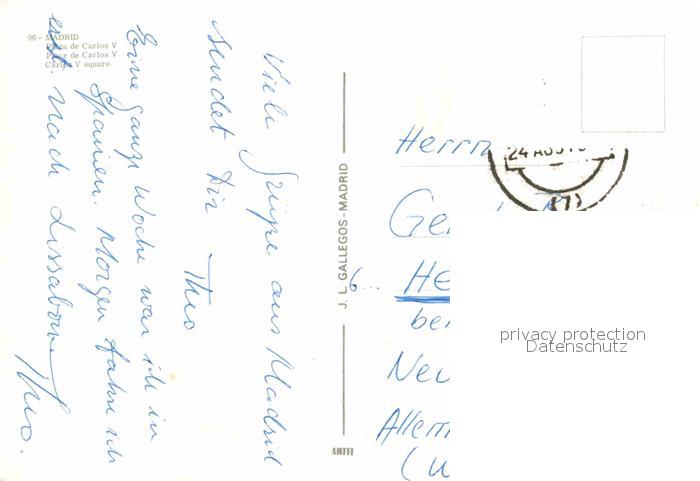 96 - MADRID
Plaza de Carlos V
Place de Carlos V
Carlos V square
Viele Grüße aus Madrid
sendet Dir Theo
Eine ganze Woche war ich in
Spanien. Morgen fahre ich
evt. nach Lissabon. Theo.
J. L. GALLEGOS - MADRID
ARTFI
24 AGUS
Herrn
Ge
He
bei
Neu
Allem
(W
privacy protection
Datenschutz